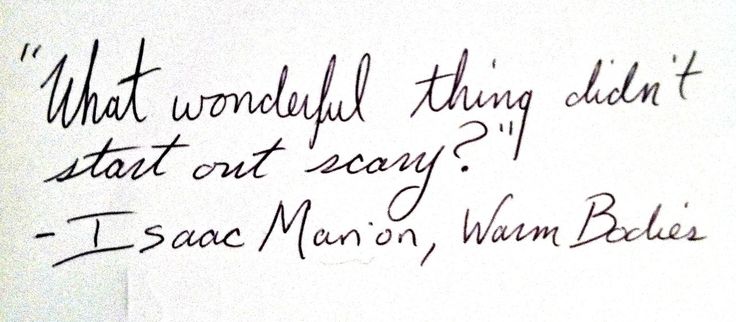 "What wonderful thing didn't
start out scary?"
- Isaac Marion, Warm Bodies